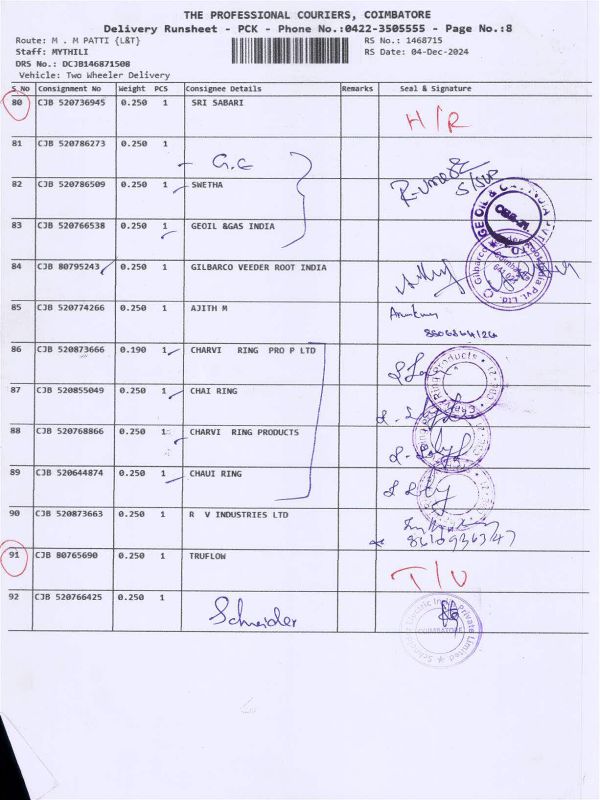 THE PROFESSIONAL COURIERS, COIMBATORE
Delivery Runsheet - PCK - Phone No.:0422-3505555 - Page No.:8
Route: M . M PATTI {L&T} RS No.: 1468715
Staff: MYTHILI RS Date: 04-Dec-2024
DRS No.: DCJB146871508
Vehicle: Two Wheeler Delivery
S.No Consignment No Weight PCS Consignee Details Remarks Seal & Signature
80 CJB 520736945 0.250 1 SRI SABARI H/R
81 CJB 520786273 0.250 1 G.E
82 CJB 520786509 0.250 1 SWETHA
83 CJB 520766538 0.250 1 GEOIL &GAS INDIA
84 CJB 80795243 0.250 1 GILBARCO VEEDER ROOT INDIA
85 CJB 520774266 0.250 1 AJITH M
86 CJB 520873666 0.190 1 CHARVI RING PRO P LTD
87 CJB 520855049 0.250 1 CHAI RING
88 CJB 520768866 0.250 1 CHARVI RING PRODUCTS
89 CJB 520644874 0.250 1 CHAUI RING
90 CJB 520873663 0.250 1 R V INDUSTRIES LTD
91 CJB 80765690 0.250 1 TRUFLOW
92 CJB 520766425 0.250 1 Schneider COIMBATORE